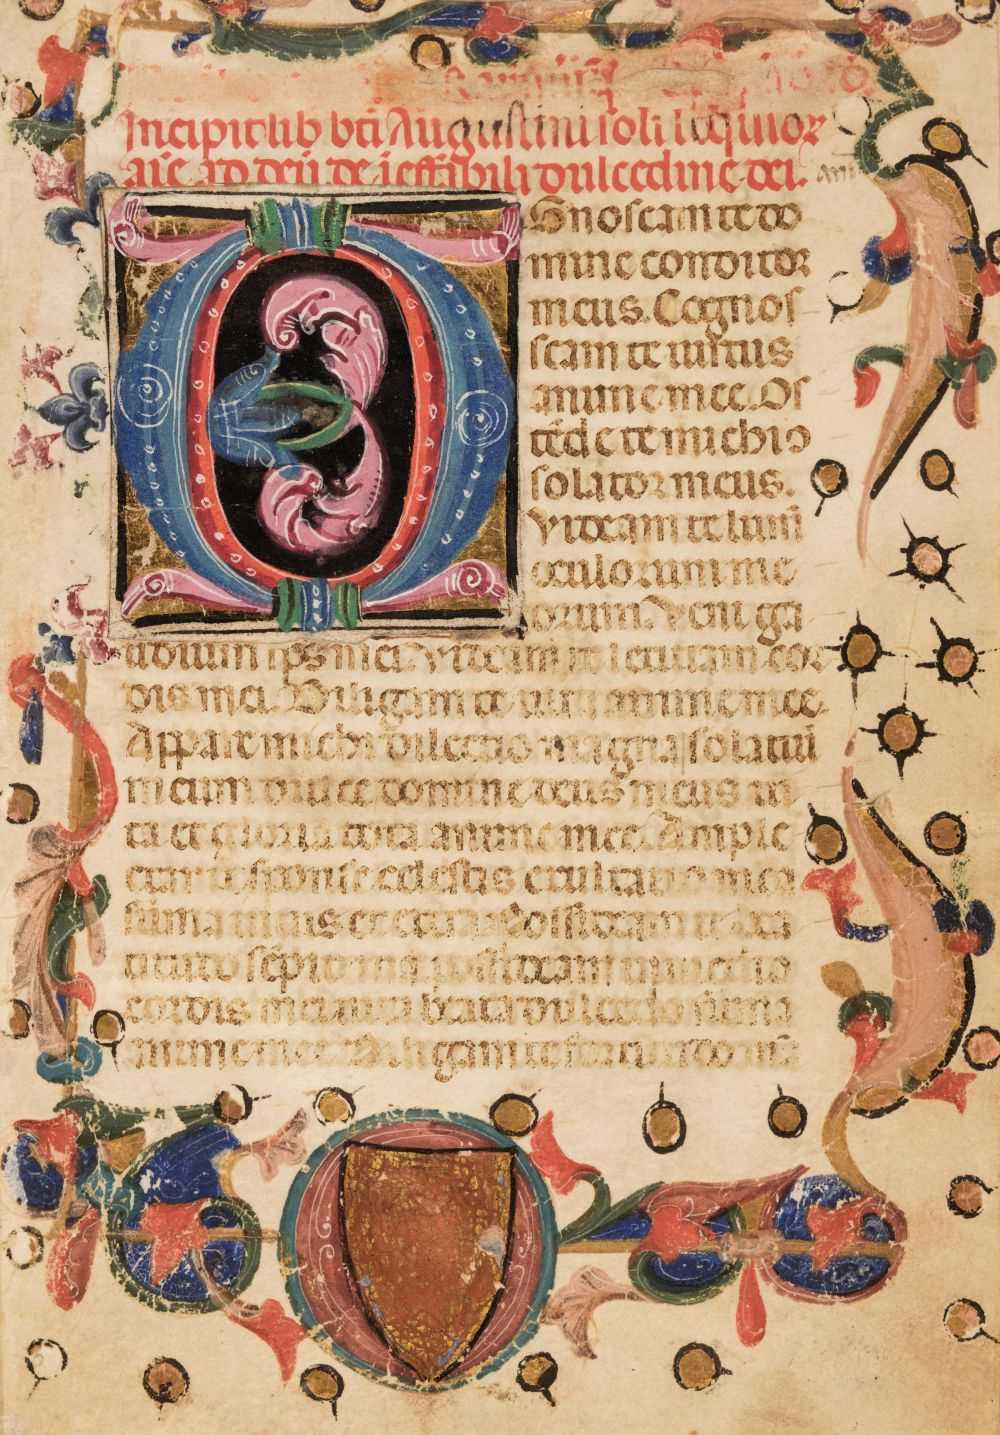 Incipit lib bti Augustini soli loquior
aie ad deu de ieffabili dulcedine dei.
Gnoscam te do
mine conditor
meus. Cognos
scam te uirtus
anime mee. Os
tede te michi o
solator meus.
Videam te lumen
oculorum me
orum. Veni ga
udium sps mei. Videam te letitiam cor
dis mei. Diligam te uita anime mee.
Appare michi dilectio magna solatiu
meum dulce domine deus meus ui
ta et gloria tota anime mee. Ample
ctar te sponse celestis exultatio mea
suma meus et extra. Possideam te bea
titudo sepiterna possideam te in medio
cordis mei uita beata dulcedo suma
anime mee. Diligam te fortitudo ma